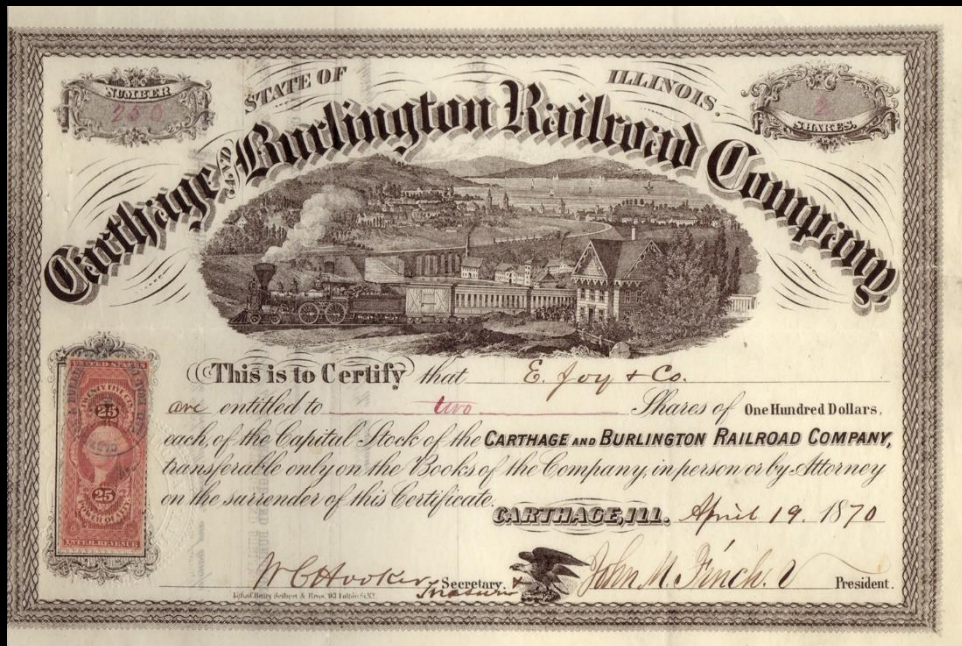 NUMBER
250
STATE OF ILLINOIS.
2
SHARES.
Carthage AND Burlington Railroad Company
This is to Certify that E. Joy & Co.
are entitled to two Shares of One Hundred Dollars,
each, of the Capital Stock of the CARTHAGE AND BURLINGTON RAILROAD COMPANY,
transferable only on the Books of the Company, in person or by Attorney
on the surrender of this Certificate.
CARTHAGE, ILL. April 19. 1870
W C Hooker Secretary. & Treasurer
John M. Finch. President.
UNITED STATES
25
25
INTER. REVENUE